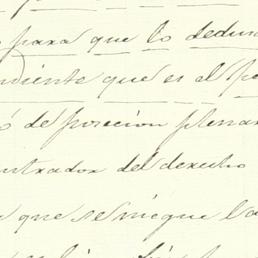 para que lo dedun
ndiente que es al pe
ó de posecion plenar
ntrador del derecho
a que se niegue la